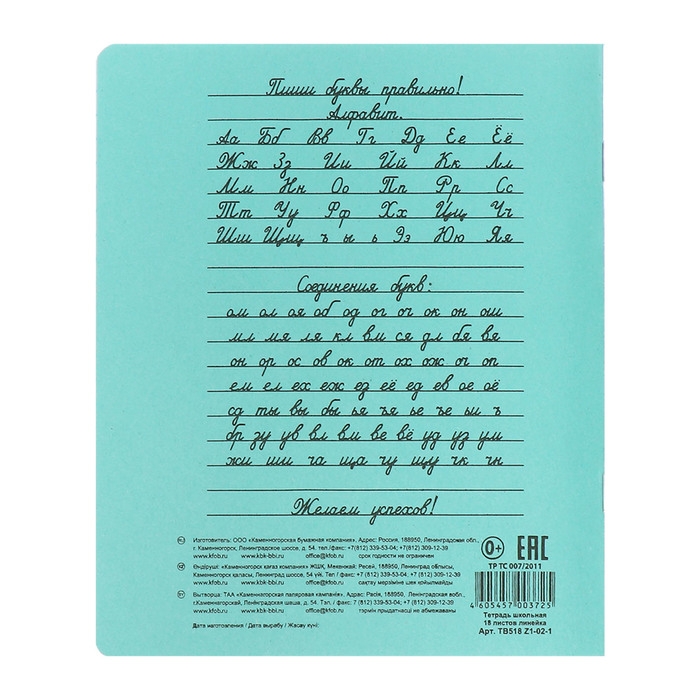 Пиши буквы правильно!
Алфавит.
Аа Бб Вв Гг Дд Ее Ёё
Жж Зз Ии Йй Кк Лл
Мм Нн Оо Пп Рр Сс
Тт Уу Фф Хх Цц Чч
Шш Щщ ъ ы ь Ээ Юю Яя
Соединения букв:
ом ол оя об од ог оч ок он ош
мл мя ля кл вм ся дл бя вя
он ор ос ов ок от ох ож оч оп
ем ел ех еж ез её ед ев ое оё
сд ты вы бы ья ъя ье ъе ьи ъ
бр зу ув вл вм ве вё уд уз ум
жи ши ча ща чу щу чк чн
Желаем успехов!
Изготовитель: ООО «Каменногорская бумажная компания», Адрес: Россия, 188950, Ленинградская обл.,
г. Каменногорск, Ленинградское шоссе, д. 54. тел./факс: +7(812) 339-53-04; +7(812) 309-12-39
www.kfob.ru www.kbk-bbi.ru office@kfob.ru срок годности не ограничен
Өндіруші: «Каменногорск кағаз компания» ЖШҚ, Мекенжай: Ресей, 188950, Ленинград облысы,
Каменногорск қаласы, Ленинград шоссе, 54 үй. Тел / факс: +7 812) 339-53-04; +7 (812) 309-12-39
www.kfob.ru www.kbk-bbi.ru office@kfob.ru сақтау мерзіміне шек қойылмайды
Вытворца: ТАА «Каменнагорская папяровая кампанія», Адрас: Расія, 188950, Ленінградская вобл.,
г.Каменнагорский, Ленінградская шаша, д. 54. Тэл. / факс: 7 (812) 339-53-04; + 7 (812) 309-12-39
www.kfob.ru www.kbk-bbi.ru office@kfob.ru тэрмін прыдатнасці не абмежаваны
Дата изготовления / Дата вырабу / Жасау күні:
0+ EAC
ТР ТС 007/2011
4 605457 003725
Тетрадь школьная
18 листов линейка
Арт. ТВ518 Z1-02-1